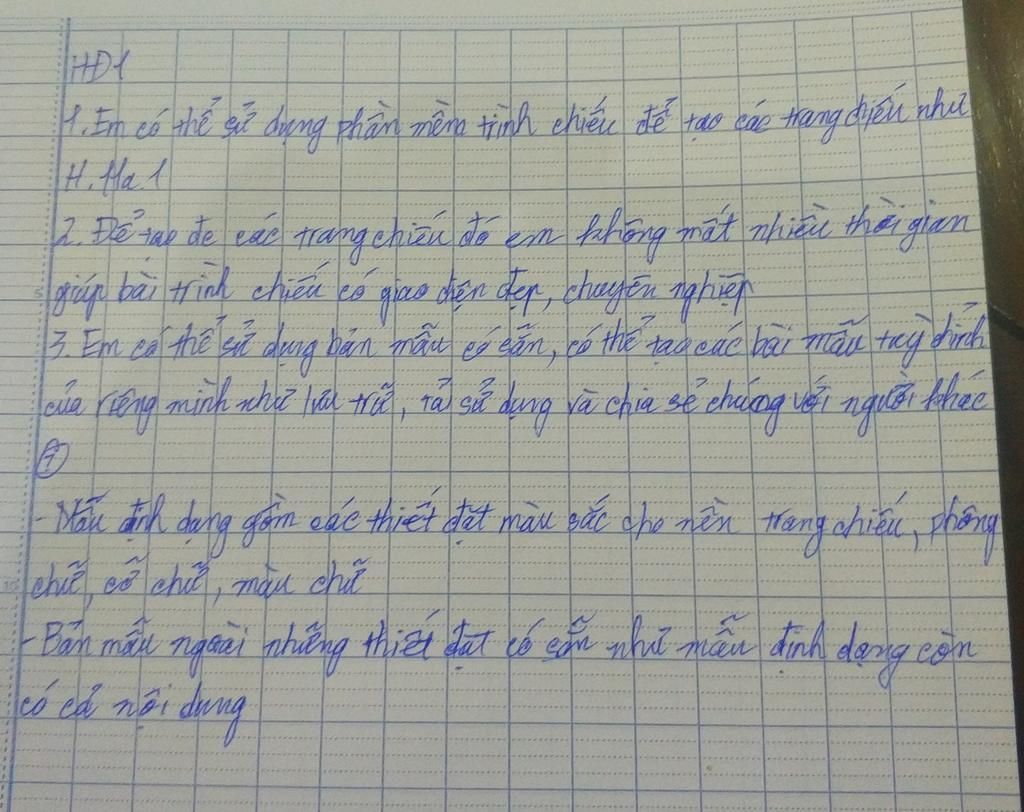 HĐ1
1. Em có thể sử dụng phần mềm trình chiếu để tạo các trang chiếu như
H. 11a.1
2. Để tạo đc các trang chiếu đó em không mất nhiều thời gian
giúp bài trình chiếu có giao diện đẹp, chuyên nghiệp
3. Em có thể sử dụng bản mẫu có sẵn, có thể tạo các bài mẫu tuỳ đỉnh
của riêng mình như lưu trữ, tả sử dụng và chia sẻ chúng với người khác
?
- Mẫu định dạng gồm các thiết đặt màu sắc cho nền trang chiếu, phông
chữ, cỡ chữ, màu chữ
- Bản mẫu ngoài những thiết đặt có sẵn như mẫu định dạng còn
có cả nội dung